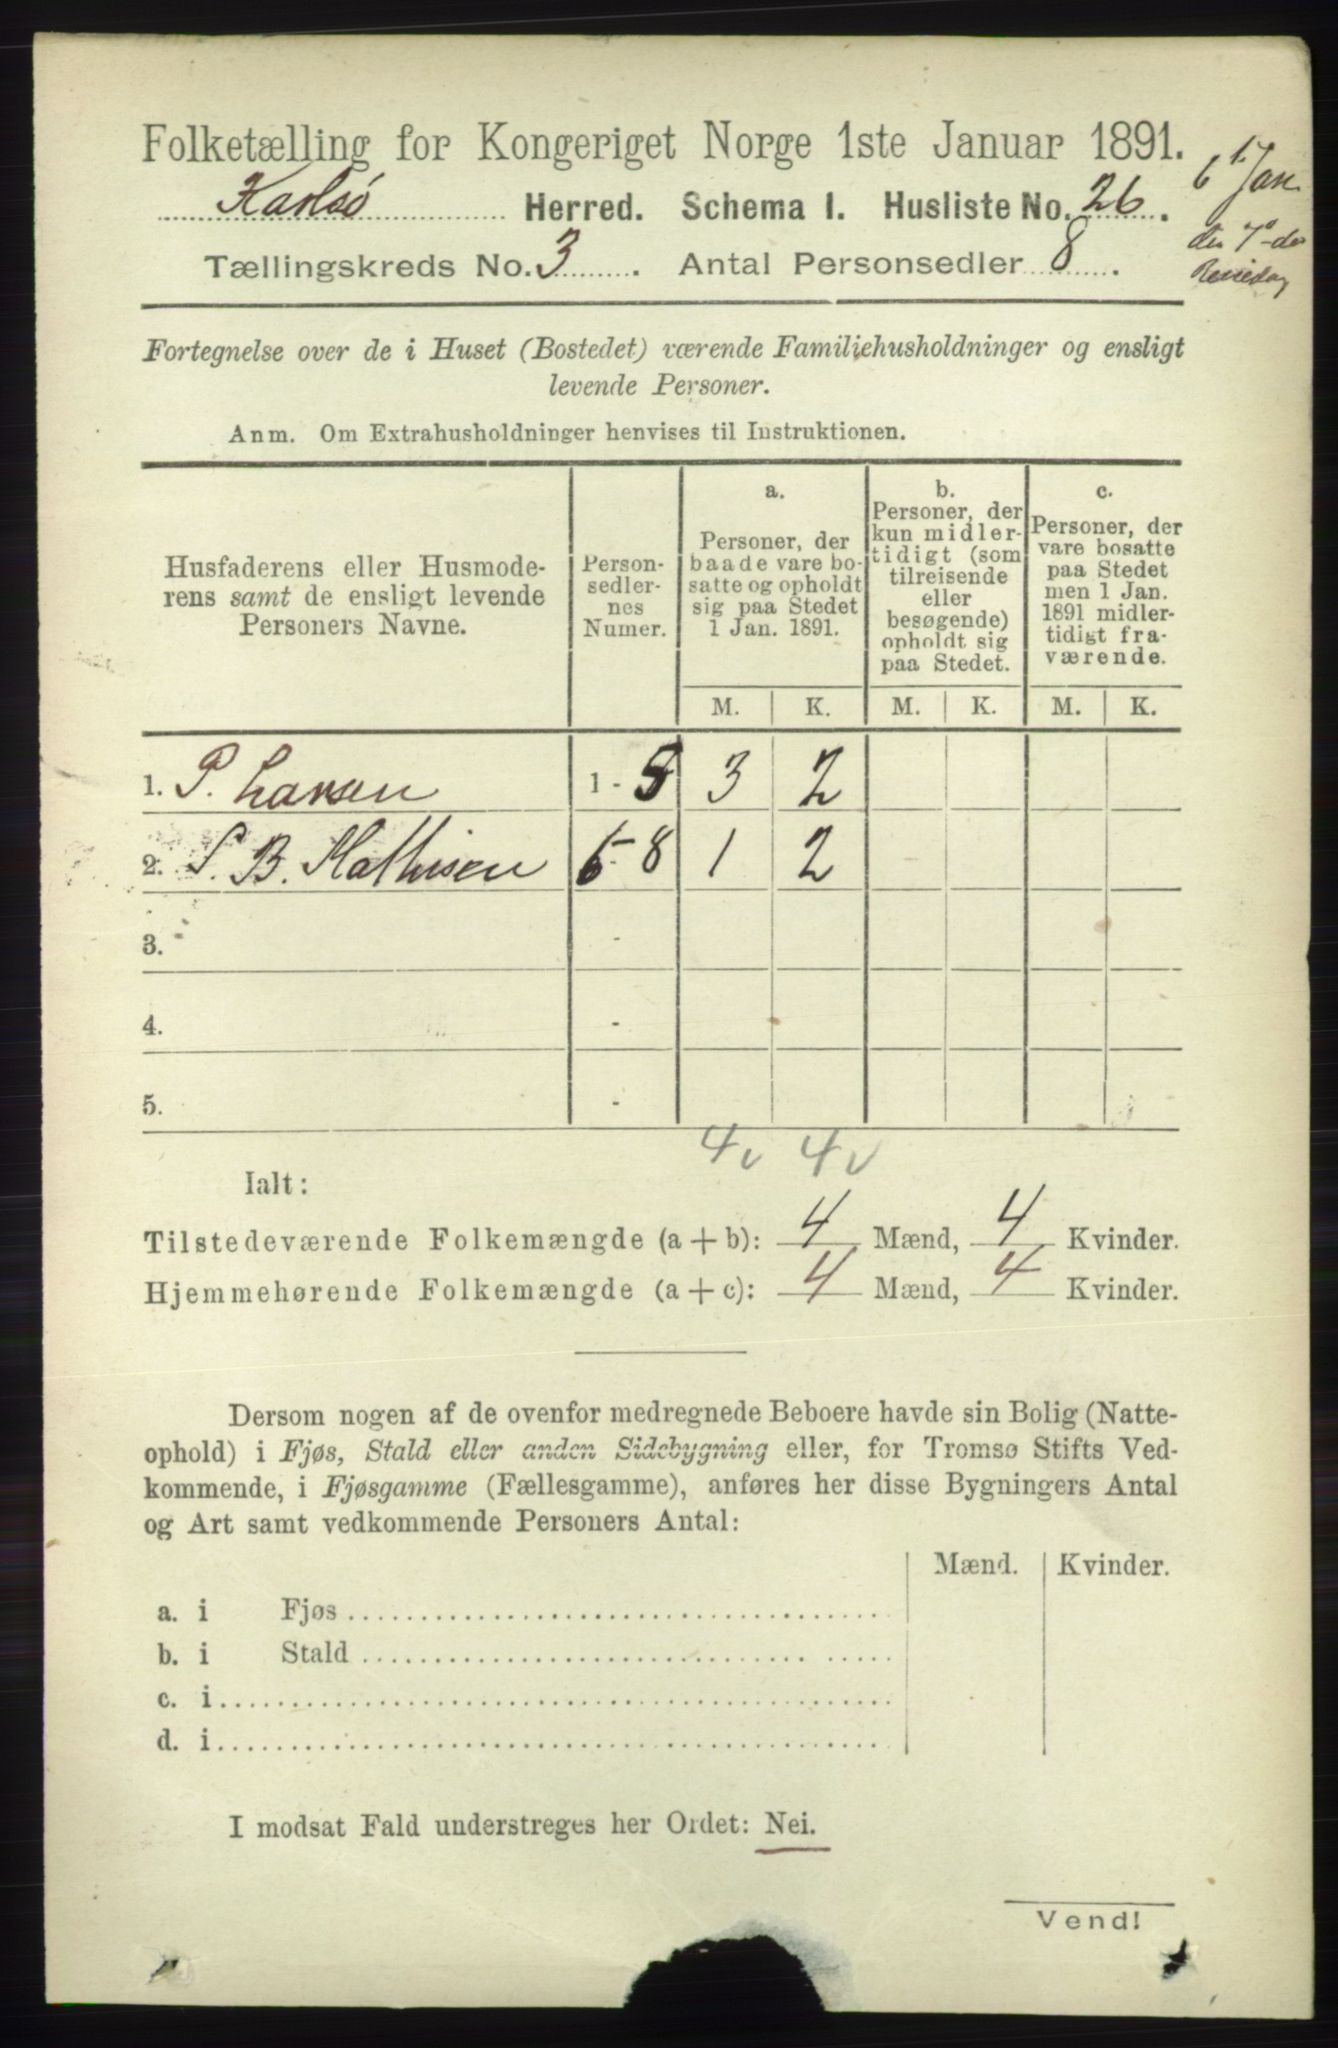 Folketælling for Kongeriget Norge 1ste Januar 1891.
Karlsø Herred. Schema 1. Husliste No. 26.
Tællingskreds No. 3. Antal Personsedler 8.
6 Jan.
Fortegnelse over de i Huset (Bostedet) værende Familiehusholdninger og ensligt
levende Personer.
Anm. Om Extrahusholdninger henvises til Instruktionen.
Husfaderens eller Husmode-
rens samt de ensligt levende
Personers Navne.
Person-
sedler-
nes
Numer.
a.
Personer, der
baade vare bo-
satte og opholdt
sig paa Stedet
1 Jan. 1891.
b.
Personer, der
kun midler-
tidigt (som
tilreisende
eller
besøgende)
opholdt sig
paa Stedet.
c.
Personer, der
vare bosatte
paa Stedet
men 1 Jan.
1891 midler-
tidigt fra-
værende.
M. K. M. K. M. K.
1. P. Larsen 1 - 5 3 2
2. S. B. Mathisen 6 - 8 1 2
3. -
4. -
5. -
4 v 4 v
Ialt:
Tilstedeværende Folkemængde (a + b): 4 Mænd, 4 Kvinder.
Hjemmehørende Folkemængde (a + c): 4 Mænd, 4 Kvinder.
Dersom nogen af de ovenfor medregnede Beboere havde sin Bolig (Natte-
ophold) i Fjøs, Stald eller anden Sidebygning eller, for Tromsø Stifts Ved-
kommende, i Fjøsgamme (Fællesgamme), anføres her disse Bygningers Antal
og Art samt vedkommende Personers Antal:
Mænd. Kvinder.
a. i Fjøs
b. i Stald
c. i
d. i
I modsat Fald understreges her Ordet: Nei.
Vend!